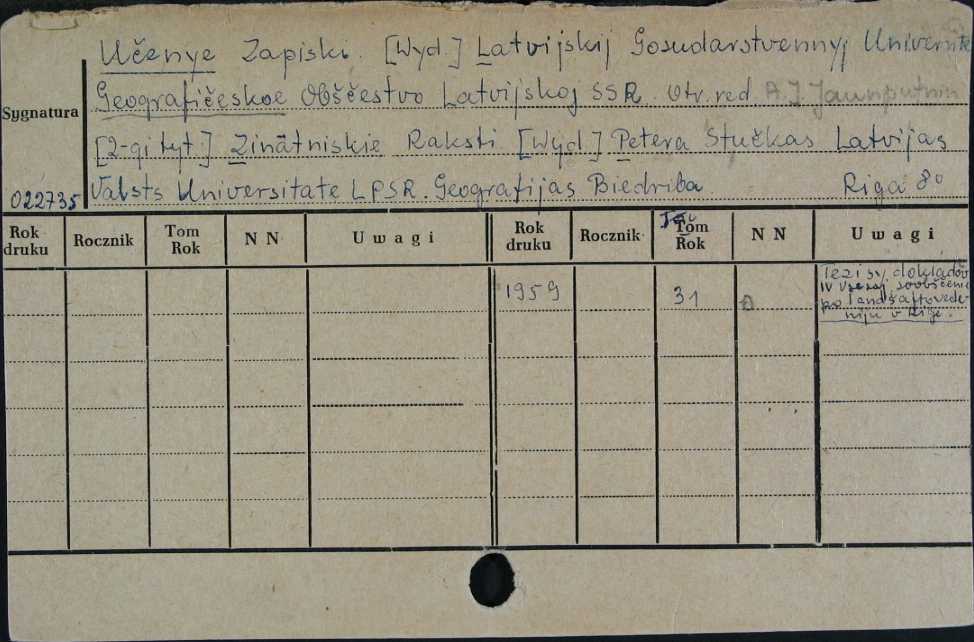 Učenye Zapiski. [Wyd.] Latvijskij Gosudarstvennyj
Geografičeskoe Obščestvo Latvijskoj SSR. Otv. red. A.J. Jaunputnin
Sygnatura
[2-gi tyt.] Zinātniskie Raksti. [Wyd.] Petera Stučkas Latvijas
022735 Valsts Universitate LPSR. Geografijas Biedriba Riga 8°
Rok druku Rocznik Tom Rok NN Uwagi Rok druku Rocznik Tom Rok NN Uwagi
1959 31 Tezisy dokladov
IV
po landšaftovede-
niju v Rige.